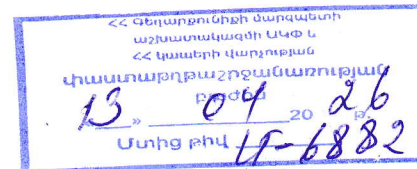 ՀՀ Գեղարքունիքի մարզպետի
աշխատակազմի ԱԿՓ և
ՀՀ կապերի վարչության
փաստաթղթաշրջանառության
բաժին
13 » 04 20 26 թ.
Մտից թիվ 6882